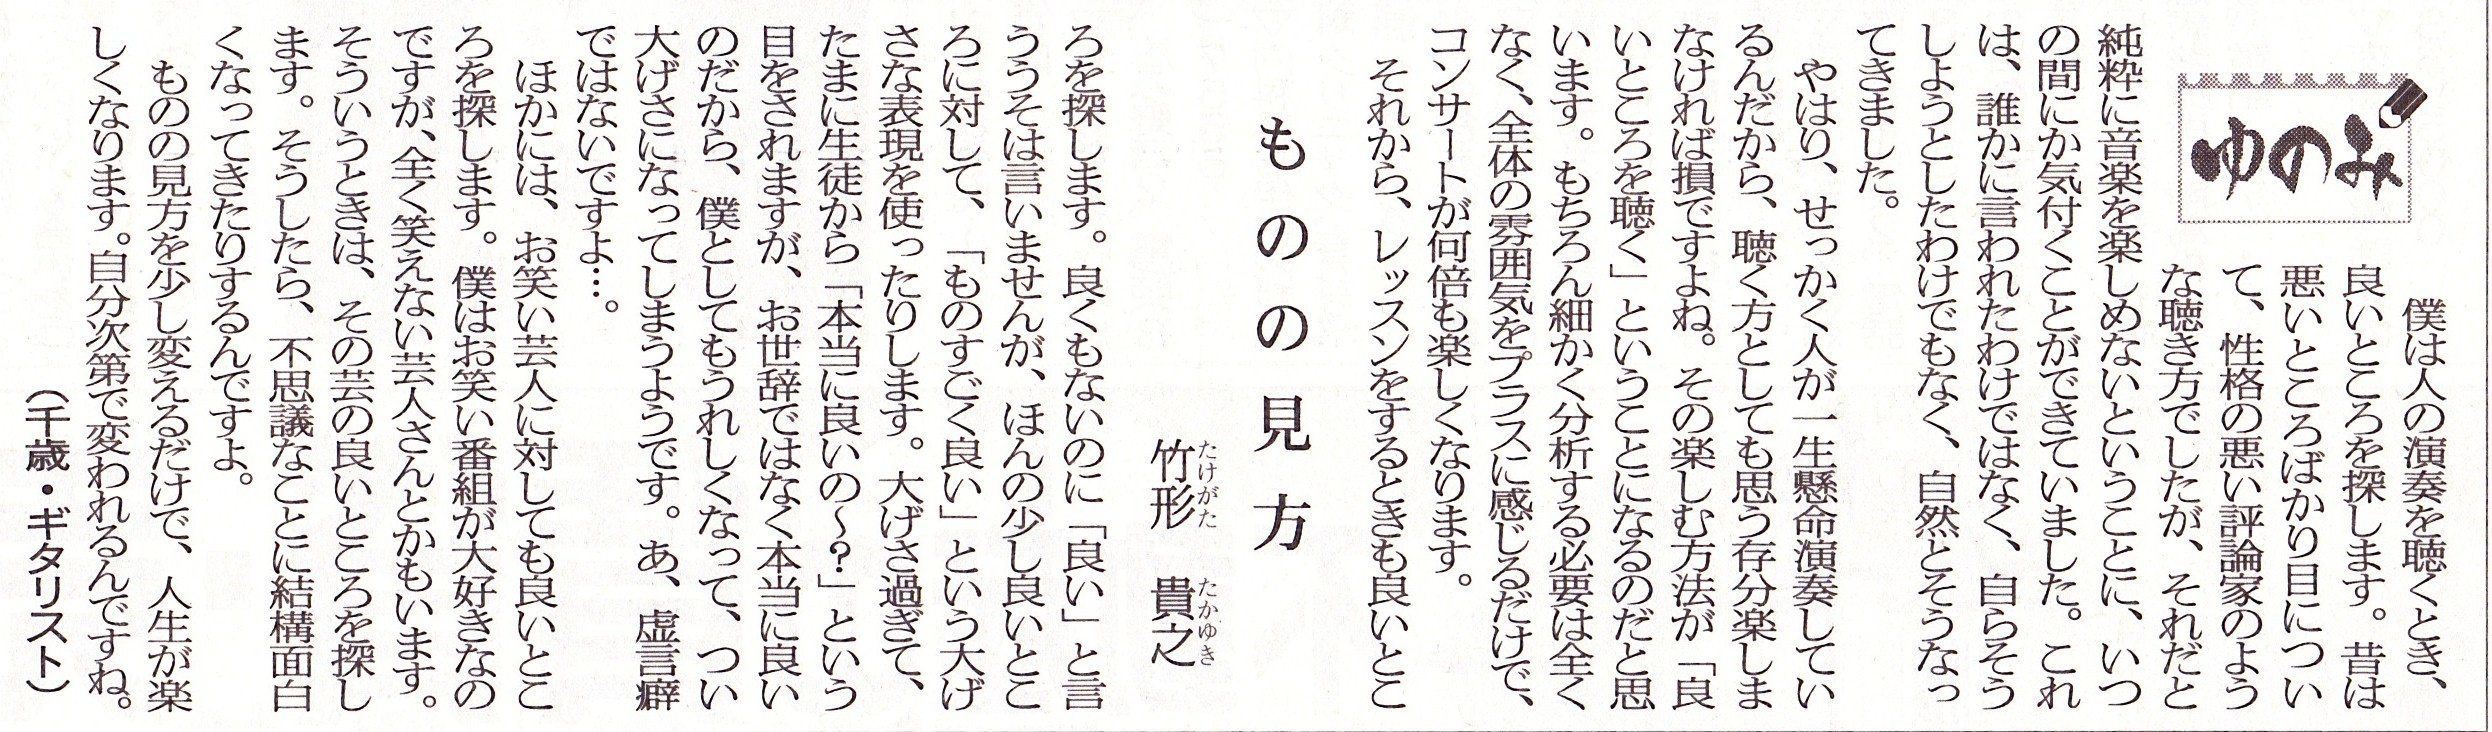 ゆのみ
僕は人の演奏を聴くとき、
良いところを探します。昔は
悪いところばかり目につい
て、性格の悪い評論家のよう
な聴き方でしたが、それだと
純粋に音楽を楽しめないということに、いつ
の間にか気付くことができていました。これ
は、誰かに言われたわけではなく、自らそう
しようとしたわけでもなく、自然とそうなっ
てきました。
やはり、せっかく人が一生懸命演奏してい
るんだから、聴く方としても思う存分楽しま
なければ損ですよね。その楽しむ方法が「良
いところを聴く」ということになるのだと思
います。もちろん細かく分析する必要は全く
なく、全体の雰囲気をプラスに感じるだけで、
コンサートが何倍も楽しくなります。
それから、レッスンをするときも良いとこ
ものの見方
竹形 貴之
たけがた たかゆき
ろを探します。良くもないのに「良い」と言
ううそは言いませんが、ほんの少し良いとこ
ろに対して、「ものすごく良い」という大げ
さな表現を使ったりします。大げさ過ぎて、
たまに生徒から「本当に良いの～？」という
目をされますが、お世辞ではなく本当に良い
のだから、僕としてもうれしくなって、つい
大げさになってしまうようです。あ、虚言癖
ではないですよ…。
ほかには、お笑い芸人に対しても良いとこ
ろを探します。僕はお笑い番組が大好きなの
ですが、全く笑えない芸人さんとかもいます。
そういうときは、その芸の良いところを探し
ます。そうしたら、不思議なことに結構面白
くなってきたりするんですよ。
ものの見方を少し変えるだけで、人生が楽
しくなります。自分次第で変われるんですね。
（千歳・ギタリスト）